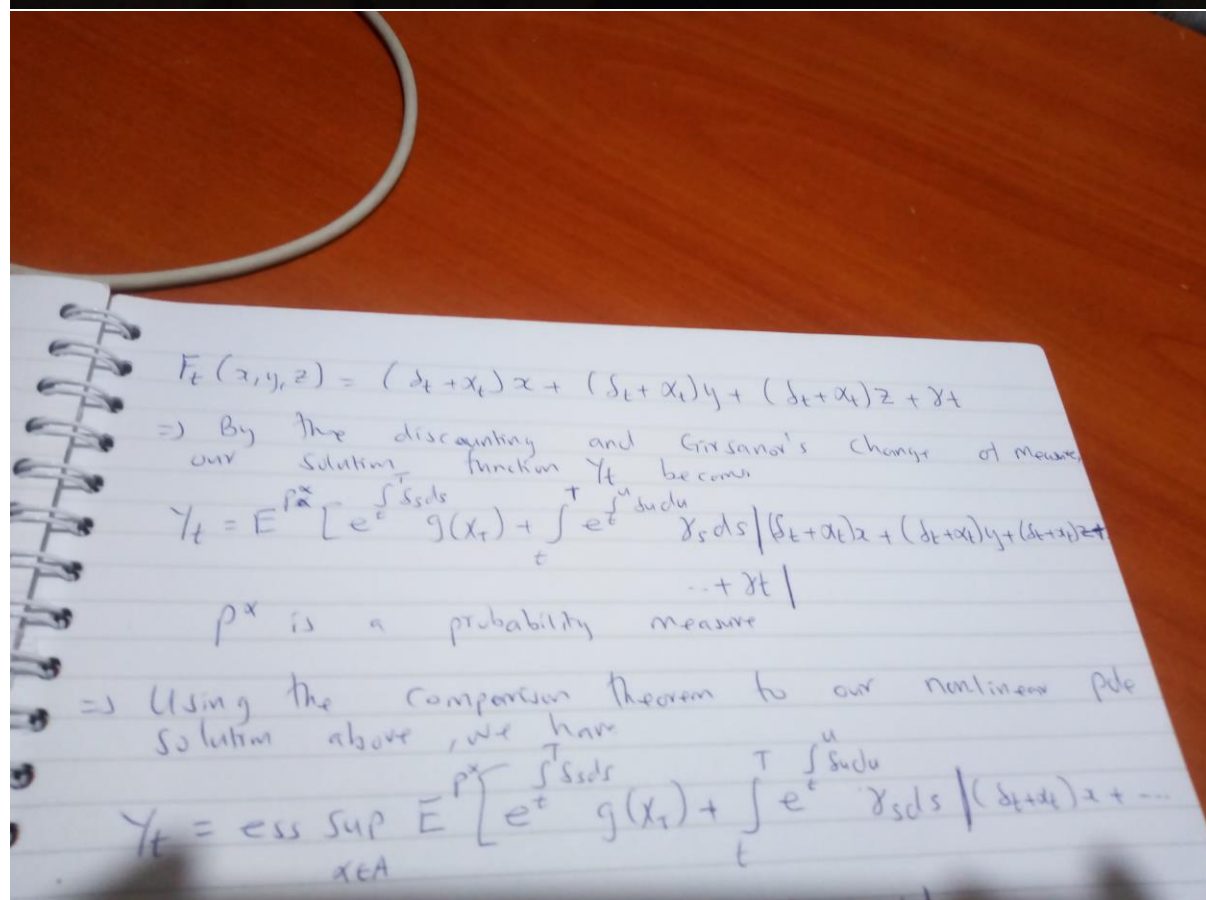 F_t (x, y, z) = (δ_t + α_t) x + (δ_t + α_t) y + (δ_t + α_t) z + γt
=> By the discounting and Girsanov's change of measure,
our solution function Y_t becomes
Y_t = E^{P^α} [ e^{∫_t^T δ_s ds} g(X_T) + ∫_t^T e^{∫_t^u δ_u du} γ_s ds | (δ_t + α_t) x + (δ_t + α_t) y + (δ_t + α_t) z +
.. + γt |
P^α is a probability measure
=> Using the comparison theorem to our nonlinear pde
solution above, we have
Y_t = ess sup_{α∈A} E^{P^α} [ e^{∫_t^T δ_s ds} g(X_T) + ∫_t^T e^{∫_t^u δ_u du} γ_s ds | (δ_t + α_t) x + ...